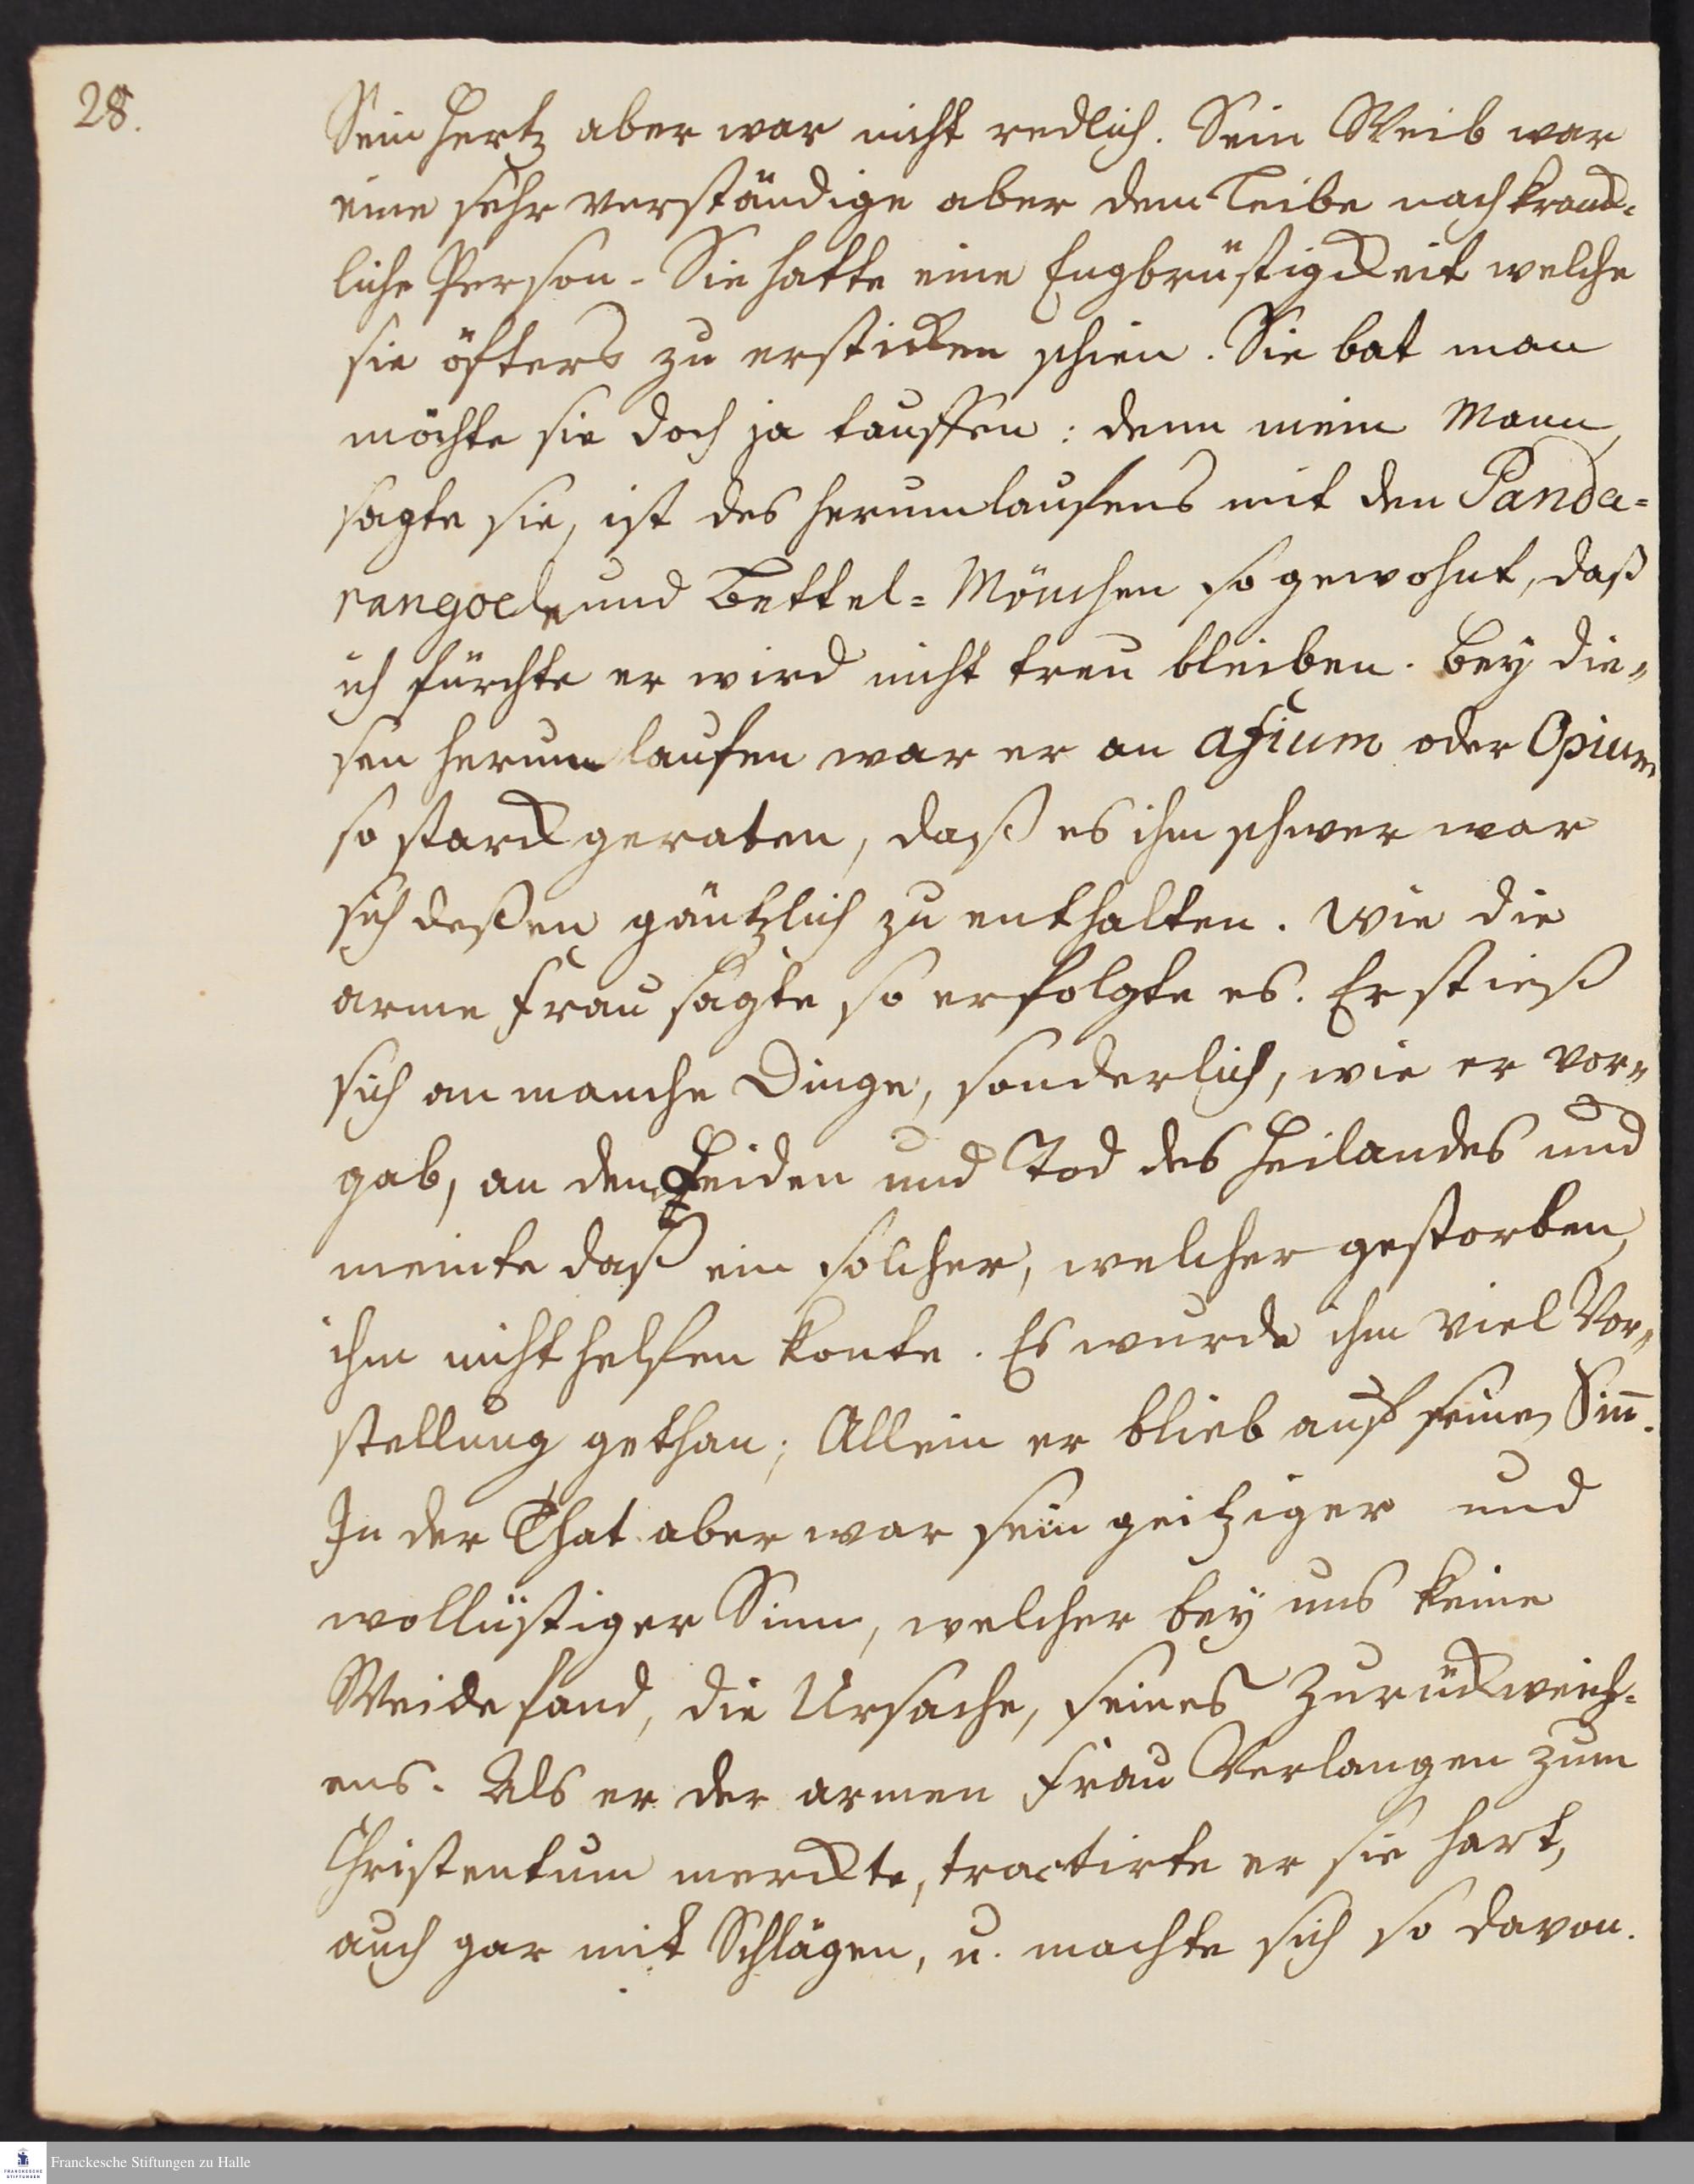 28.
Sein Hertz aber war nicht redlich. Sein Weib war
eine sehr verständige aber dem Leibe nach kranck=
liche Person. Sie hatte eine Engbrüstigckeit welche
sie öfters zu ersticken schien. Sie bat man
möchte sie doch ja tauffen: denn mein Mann,
sagte sie, ist des herumlaufens mit den Panda=
rangoele und Bettel=Mönchen so gewohnt, daß
ich fürchte er wird nicht treu bleiben. Bey die=
sen herum laufen war er an afium oder Opium
so starck geraten, daß es ihm schwer war
sich deßen gäntzlich zu enthalten. Wie die
arme Frau sagte so erfolgte es. Er stieß
sich an manche Dinge, sonderlich, wie er vor=
gab, an dem Leiden und Tod des Heilandes und
meinte daß ein solcher, welcher gestorben,
ihm nicht helfen konte. Es wurde ihm viel Vor=
stellung gethan; Allein er blieb auf seinen Sin̄.
In der That aber war sein geitziger und
wollüstiger Sinn, welcher bey uns keine
Weide fand, die Ursache, seines Zurückweich=
ens. Als er der armen Frau Verlangen zum
Christentum merckte, tractirte er sie hart,
auch gar mit Schlägen, u. machte sich so davon.
FRANCKESCHE
STIFTUNGEN
Franckesche Stiftungen zu Halle